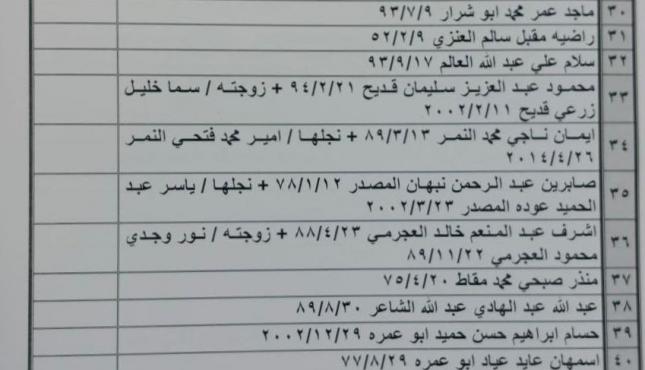 ٣٠ ماجد عمر محمد ابو شرار ٩٣/٧/٩
٣١ راضيه مقبل سالم العنزي ٥٢/٢/٩
٣٢ سلام علي عبد الله العالم ٩٣/٩/١٧
٣٣ محمود عبد العزيز سليمان قديح ٩٤/٢/٢١ + زوجته / سما خليل
زرعي قديح ٢٠٠٢/٢/١١
٣٤ ايمان ناجي محمد النمر ٨٩/٣/١٣ + نجلها / امير محمد فتحي النمر
٢٠١٤/٤/٢٦
٣٥ صابرين عبد الرحمن نبهان المصدر ٧٨/١/١٢ + نجلها / ياسر عبد
الحميد عوده المصدر ٢٠٠٢/٣/٢٣
٣٦ اشرف عبد المنعم خالد العجرمي ٨٨/٤/٢٣ + زوجته / نور وجدي
محمود العجرمي ٨٩/١١/٢٢
٣٧ منذر صبحي محمد مقاط ٧٥/٤/٢٠
٣٨ عبد الله عبد الهادي عبد الله الشاعر ٨٩/٨/٣٠
٣٩ حسام ابراهيم حسن حميد ابو عمره ٢٠٠٢/١٢/٢٩
٤٠ اسمهان عايد عياد ابو عمره ٧٧/٨/٢٩